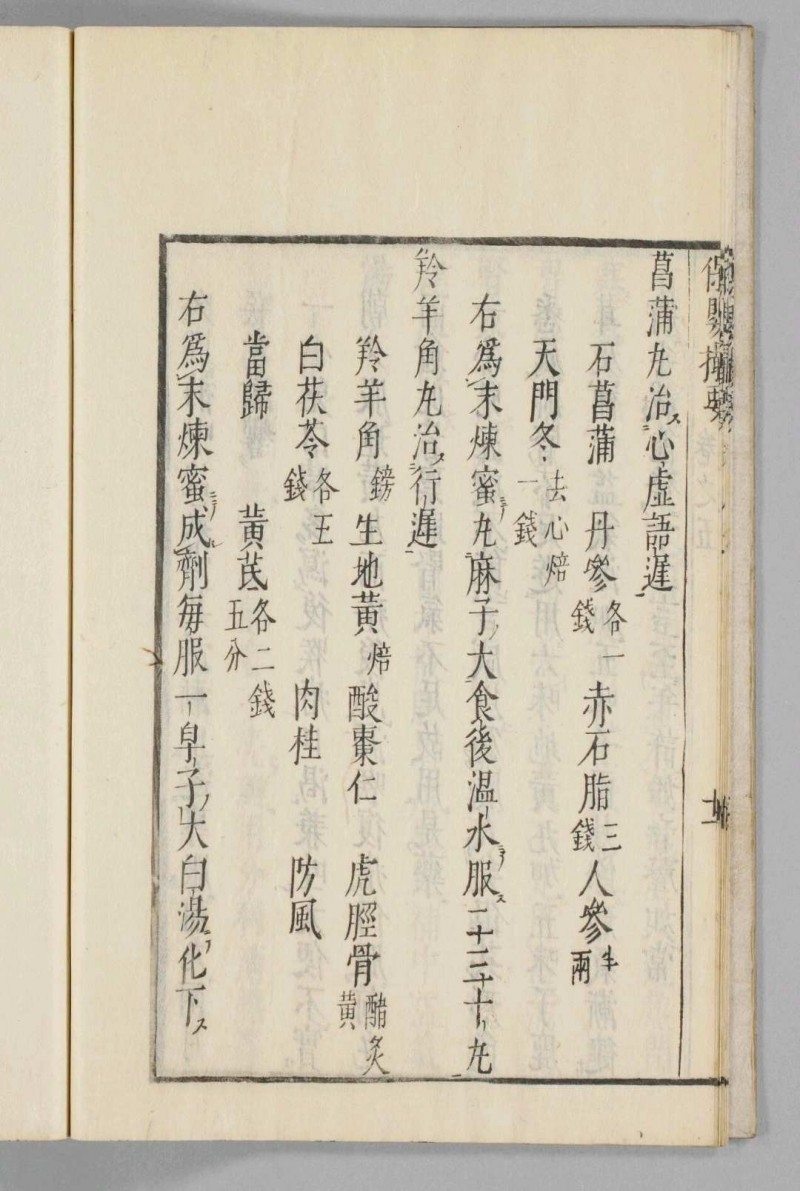 保嬰撮要
菖蒲丸治ス心虛語遲
石菖蒲 丹參各一錢 赤石脂三錢 人參半兩
天門冬去心焙一錢
右爲末煉蜜丸麻子大食後温水服二十三十丸
羚羊角丸治ス行遲
羚羊角鎊 生地黃焙 酸棗仁 虎脛骨醋炙黃
白茯苓各五錢 肉桂 防風
當歸 黃芪各二錢五分
右爲末煉蜜成劑每服一皁子大白湯化下ス